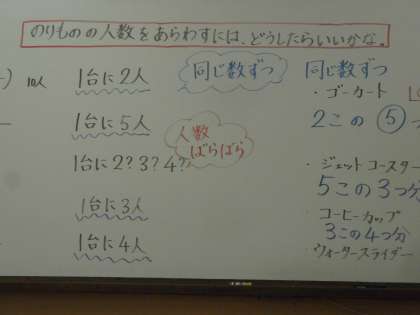 のりものの人数をあらわすには、どうしたらいいかな。
10人
1台に2人
同じ数ずつ
1台に5人
人数
ばらばら
1台に2?3?4?
1台に3人
1台に4人
同じ数ずつ
・ゴーカート
2この⑤つ
・ジェットコースター
5この3つ分
・コーヒーカップ
3この4つ分
・ウォータースライダー